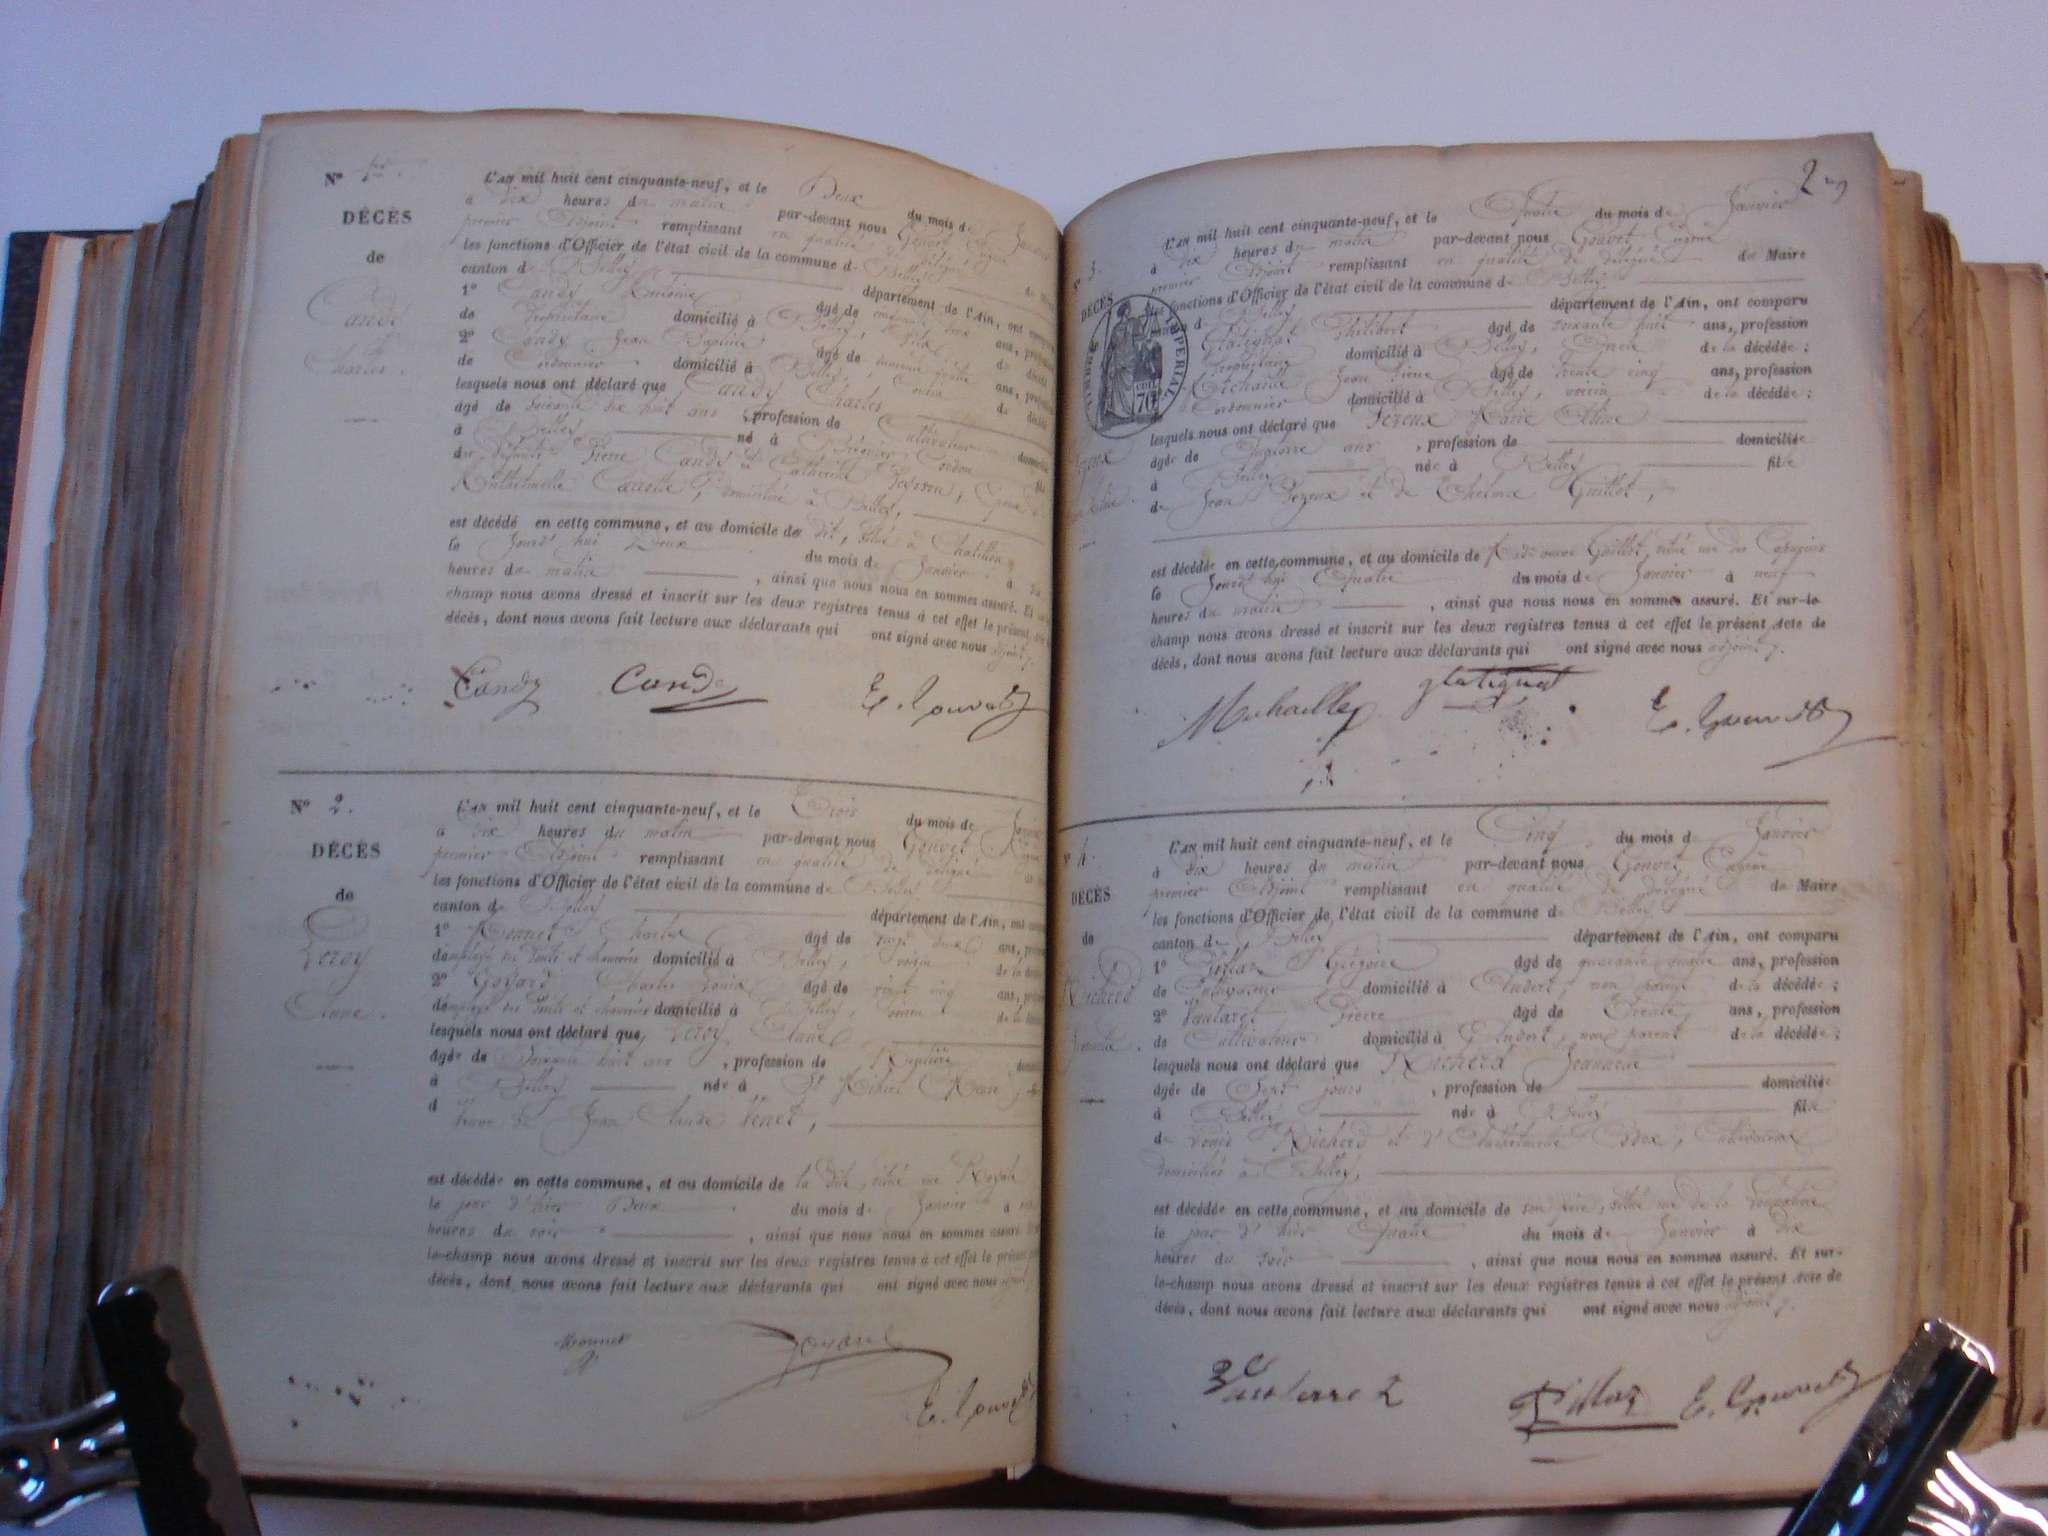 N° 1er
DÉCÈS
de
Candy
Charles.
L'AN mil huit cent cinquante-neuf, et le Deux du mois de Janvier
à Dix heures du matin par-devant nous Gouvet Eugène
premier Adjoint remplissant en qualité de délégué
les fonctions d'Officier de l'état civil de la commune de Belley
canton de Belley département de l'Ain, ont comparu
1° Candy Antoine âgé de ans, profession
de Propriétaire domicilié à Belley, fils du décédé
2° Candy Jean Baptiste âgé de ans, profession
de Cordonnier domicilié à Belley, du décédé
lesquels nous ont déclaré que Candy Charles
âgé de Soixante dix huit ans, profession de Cultivateur domicilié
à Belley né à Cordon fils
de défunts Pierre Candy et Catherine
domicilié à Belley,
est décédé en cette commune, et au domicile du dit, situé à Chatillon,
le Jourd'hui Deux du mois de Janvier à
heures du matin, ainsi que nous nous en sommes assuré. Et sur le
champ nous avons dressé et inscrit sur les deux registres tenus à cet effet le présent acte de
décès, dont nous avons fait lecture aux déclarants qui ont signé avec nous adjoint.
Candy Candy E. Gouvet
N° 2.
DÉCÈS
de
Leroy
Anne.
L'AN mil huit cent cinquante-neuf, et le Trois du mois de Janvier
à Dix heures du matin par-devant nous Gouvet Eugène
premier Adjoint remplissant en qualité de délégué
les fonctions d'Officier de l'état civil de la commune de Belley
canton de Belley département de l'Ain, ont comparu
1° Monnet Charles âgé de vingt deux ans, profession
d'employé des Ponts et chaussées domicilié à Belley, voisin de la décédée
2° Goyard Charles Louis âgé de vingt cinq ans, profession
d'employé des Ponts et chaussées domicilié à Belley, voisin de la décédée
lesquels nous ont déclaré que Leroy Anne
âgée de Soixante huit ans, profession de Rentière domiciliée
à Belley née à St Mihiel (Meuse) fille
d veuve de Jean Claude Venet,
est décédée en cette commune, et au domicile de la dite, situé rue Royale
le jour d'hier Deux du mois de Janvier à
heures du soir, ainsi que nous nous en sommes assuré. Et sur
le-champ nous avons dressé et inscrit sur les deux registres tenus à cet effet le présent
décès, dont nous avons fait lecture aux déclarants qui ont signé avec nous adjoint
Monnet Goyard
E. Gouvet
2
N° 3.
DÉCÈS
TIMBRE IMPERIAL
70
L'AN mil huit cent cinquante-neuf, et le Quatre du mois de Janvier
à Dix heures du matin par-devant nous Gouvet Eugène
premier Adjoint remplissant en qualité de délégué du Maire
les fonctions d'Officier de l'état civil de la commune de Belley
canton de Belley département de l'Ain, ont comparu
Glatignat Philibert âgé de soixante huit ans, profession
Propriétaire domicilié à Belley, de la décédée;
Jean Pierre âgé de trente cinq ans, profession
Cordonnier domicilié à Belley, voisin de la décédée;
lesquels nous ont déclaré que Pezeux Marie Aline
âgée de ans, profession de domiciliée
à Belley née à Belley fille
de Jean Pezeux et de Thelma Guillot,
est décédée en cette commune, et au domicile de veuve Guillot, situé rue des Capucins
le Jourd'hui Quatre du mois de Janvier à neuf
heures du matin, ainsi que nous nous en sommes assuré. Et sur-le-
champ nous avons dressé et inscrit sur les deux registres tenus à cet effet le présent acte de
décès, dont nous avons fait lecture aux déclarants qui ont signé avec nous adjoint.
glatignat E. Gouvet
N° 4.
DÉCÈS
de
Richerd
Jeannette.
L'AN mil huit cent cinquante-neuf, et le Cinq du mois de Janvier
à Dix heures du matin par-devant nous Gouvet Eugène
premier Adjoint remplissant en qualité de délégué du Maire
les fonctions d'Officier de l'état civil de la commune de Belley
canton de Belley département de l'Ain, ont comparu
1° Grégoire âgé de quarante quatre ans, profession
de Cultivateur domicilié à Andert, non parent de la décédée;
2° Pierre âgé de Trente ans, profession
de Cultivateur domicilié à Andert, non parent de la décédée;
lesquels nous ont déclaré que Richerd Jeannette
âgée de Sept jours, profession de domiciliée
à Belley née à Belley fille
de Louis Richerd et d'Anthelmette Cultivateurs
domiciliés à Belley,
est décédée en cette commune, et au domicile de son père, situé rue de la
le jour d'hier Quatre du mois de Janvier à dix
heures du soir, ainsi que nous nous en sommes assuré. Et sur-
le-champ nous avons dressé et inscrit sur les deux registres tenus à cet effet le présent acte de
décès, dont nous avons fait lecture aux déclarants qui ont signé avec nous adjoint.
E. Gouvet